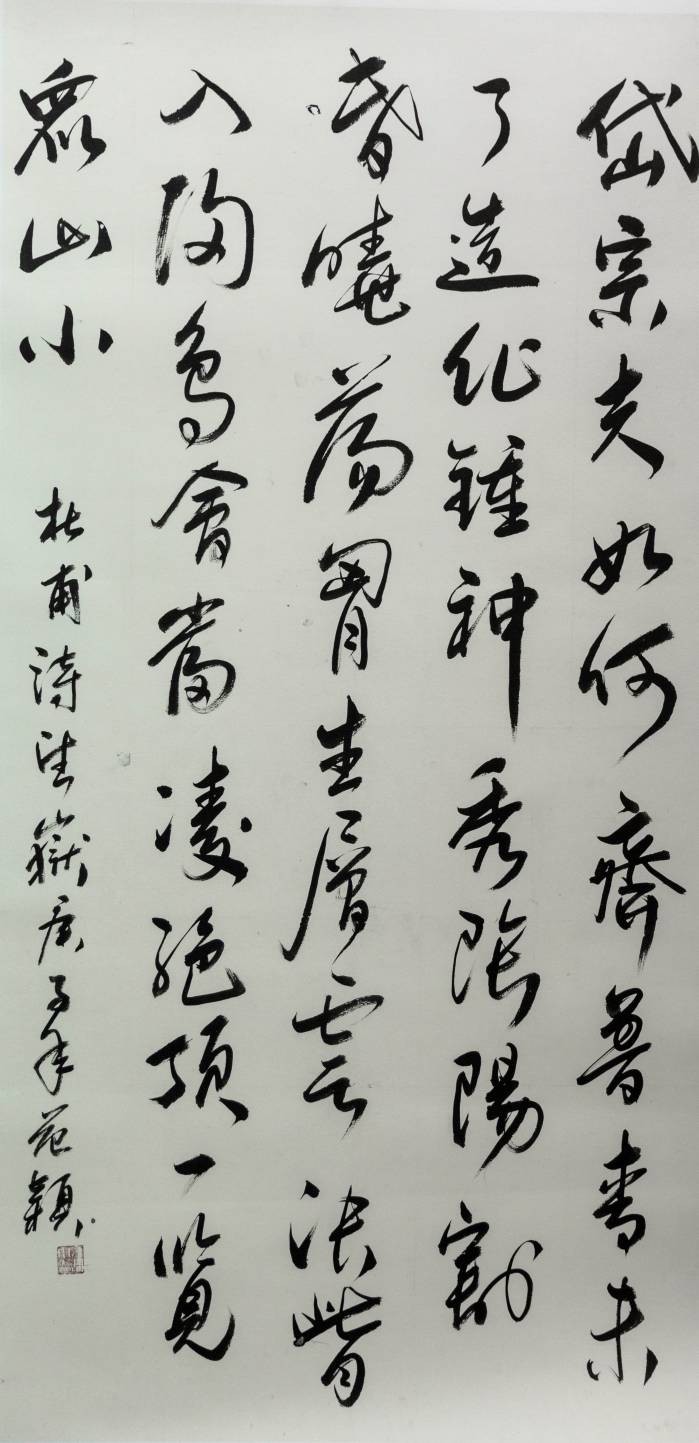 岱宗夫如何齊魯青未
了造化鍾神秀陰陽割
昏曉蕩胷生層雲決眥
入歸鳥會當凌絕頂一覽
眾山小
杜甫詩望嶽庚子年范穎